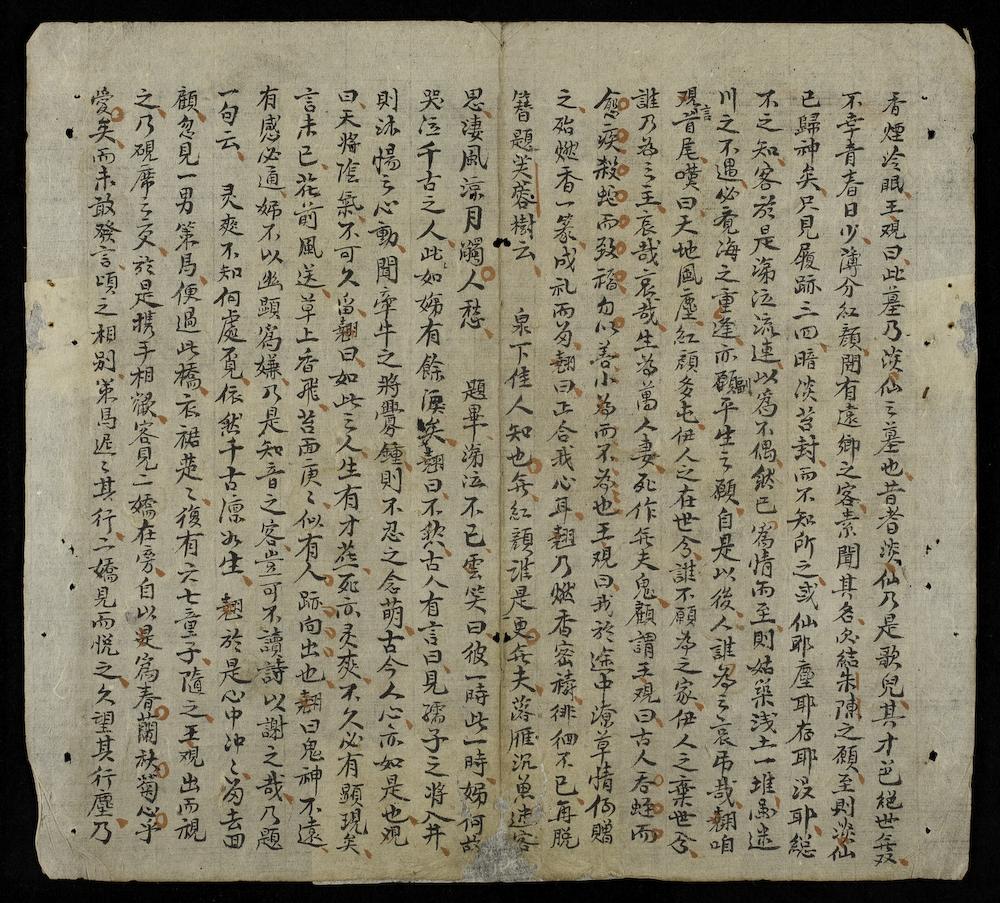 香煙冷眠王观曰此墓乃淡仙之墓也昔者淡仙乃是歌兒其才色絕世無双
不幸青春日少薄分紅顔閒有遠鄉之客素聞其名忽結朱陳之願至則淡仙
已歸神矣只見履跡三四暗淡苔封而不知所之或仙耶塵耶存耶沒耶總
不之知客於是涕泣流連以爲不偶然已爲情而至則姑築淺土一堆愚迷
川之不遇必竟海之重逢亦願副平生之願自是以後人誰爲之哀吊哉翹咱
观言首尾嘆曰天地風塵紅顔多屯伊人之在世兮誰不願爲之家伊人之棄世兮
誰乃爲之主哀哉哀哉生為萬人妻死作無夫鬼顧謂王观曰古人吞蛭而
愈疾殺蛇而致福勿以善小為而不為也王观曰我於途中潦草情何贈
之殆燃香一篆成礼而為翹曰正合我心耳翹乃燃香密禱徘徊不已再脱
簪題芙蓉樹云　泉下佳人知也無紅顔誰是更無夫落雁沉魚迷客
思凄風涼月觸人愁　題畢涕泣不已雲笑曰彼一時此一時姊何故
哭泣千古之人此如姊有餘淚矣翹曰不歎古人有言曰見孺子之將入井
則怵惕之心動聞牽牛之將釁鐘則不忍之念萌古今人心亦如是也观
曰天將陰氣不可久留翹曰如此之人生有才花死亦灵爽不久必有顯現矣
言未已花前風送草上香飛苔面庚〻似有人跡向出也翹曰鬼神不遠
有感必通姊不以幽顕爲嫌乃是知音之客豈可不讀詩以謝之哉乃題
一句云　灵爽不知何處覓依然千古凛如生　翹於是心中冲〻爲去田
顧忽見一男策馬便過此橋衣裾楚〻後有六七童子隨之王观出而視
之乃硯席之交於是携手相歡客見二嬌在旁自以是爲春蘭秋菊心乎
愛矣而未敢發言頃之相别策馬遅〻其行二嬌見而悅之久望其行塵乃